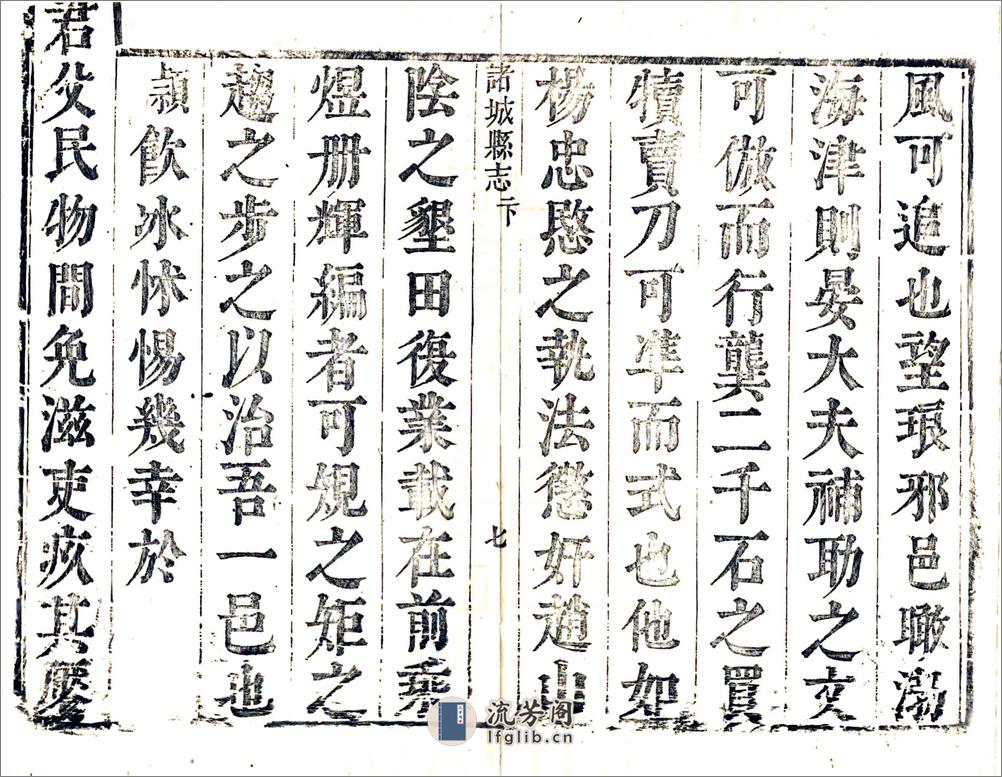 風可追也望琅邪邑瞰渤
海津則晏大夫補助之文
可倣而行龔二千石之買
犢賣刀可准而式也他如
楊忠愍之執法懲奸趙山
諸城縣志 下 七
陰之墾田復業載在前乘
煜册輝編者可規之矩之
趨之步之以治吾一邑也
頴飲冰怵惕幾幸於
君父民物間免滋吏疚其慶
流芳阁
lfglib.cn